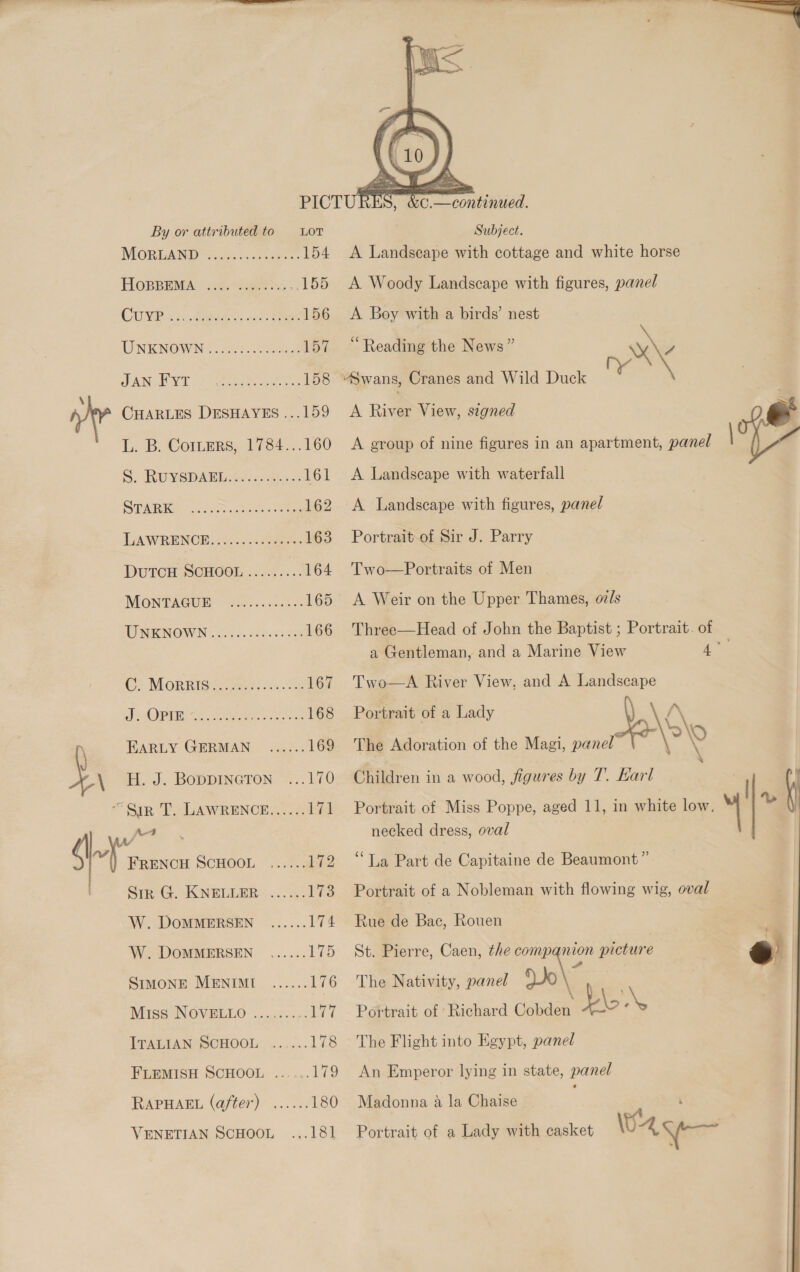 10
PICTURES, &c.—continued.
By or attributed to LOT Subject.
MORLAND ............... 154 A Landscape with cottage and white horse
HOBBEMA ............... 155 A Woody Landscape with figures, panel
CUYP ............... 156 A Boy with a birds' nest
UNKNOWN ............... 157 “Reading the News”
JAN FYT ............... 158 Swans, Cranes and Wild Duck
CHARLES DESHAYES ...159 A River View, signed
L. B. COILERS, 1784...160 A group of nine figures in an apartment, panel
S. RUYSDAEL............161 A Landscape with waterfall
STARK ............... 162 A Landscape with figures, panel
LAWRENCE............... 163 Portrait of Sir J. Parry
DUTCH SCHOOL .........164 Two—Portraits of Men
MONTAGUE ............165 A Weir on the Upper Thames, oils
UNKNOWN...............166 Three—Head of John the Baptist ; Portrait of
a Gentleman, and a Marine View 4
C. MORRIS...............167 Two—A River View, and A Landscape
J. OPIE ...............168 Portrait of a Lady
EARLY GERMAN ......169 The Adoration of the Magi, panel
H. J. BODDINGTON ...170 Children in a wood, figures by T. Earl
SIR T. LAWRENCE......171 Portrait of Miss Poppe, aged 11, in white low.
necked dress, oval
FRENCH SCHOOL ......172 “La Part de Capitaine de Beaumont”
SIR G. KNELLER ......173 Portrait of a Nobleman with flowing wig, oval
W. DOMMERSEN ......174 Rue de Bac, Rouen
W. DOMMERSEN ......175 St. Pierre, Caen, the companion picture
SIMONE MENIMI ......176 The Nativity, panel
MISS NOVELLO .........177 Portrait of Richard Cobden
ITALIAN SCHOOL ......178 The Flight into Egypt, panel
FLEMISH SCHOOL ......179 An Emperor lying in state, panel
RAPHAEL (after) ......180 Madonna à la Chaise
VENETIAN SCHOOL ...181 Portrait of a Lady with casket